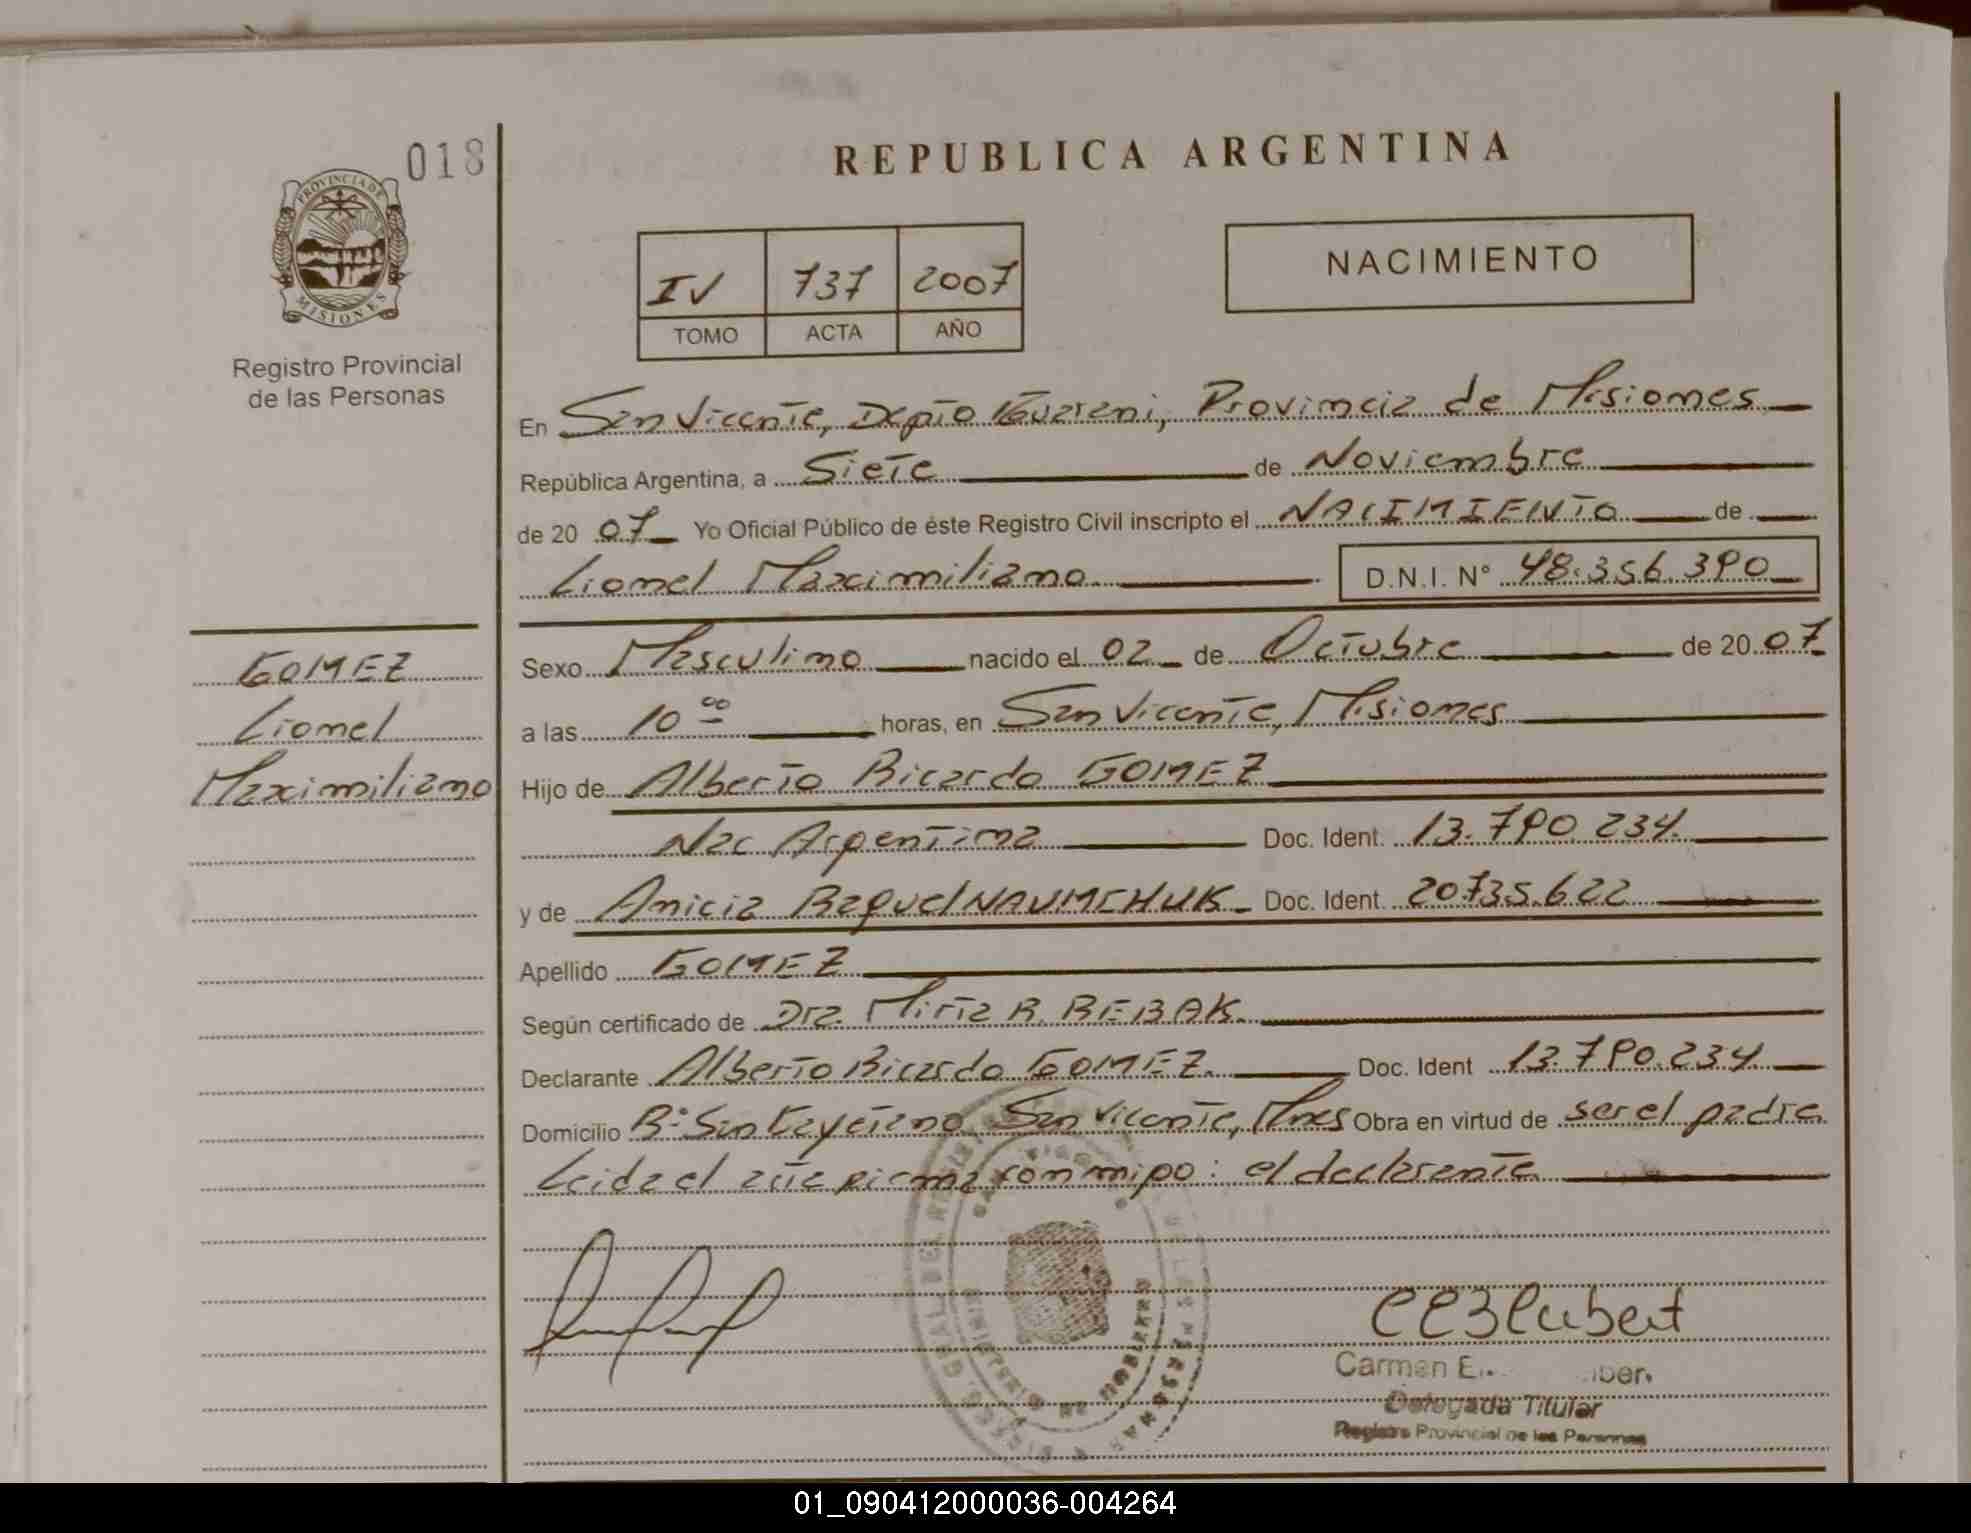 018
PROVINCIA DE
MISIONES
Registro Provincial
de las Personas
REPUBLICA ARGENTINA
IV 737 2007
TOMO ACTA AÑO
NACIMIENTO
En San Vicente, Depto Guarani, Provincia de Misiones
República Argentina, a Siete de Noviembre
de 20 07 Yo Oficial Público de éste Registro Civil inscripto el NACIMIENTO de
Lionel Maximiliano D.N.I. N° 48.356.390
GOMEZ
Lionel
Maximiliano
Sexo Masculino nacido el 02 de Octubre de 20 07
a las 10 00 horas, en San Vicente, Misiones
Hijo de Alberto Ricardo GOMEZ
Nac Argentina Doc. Ident. 13.790.234.
y de Anicia Raquel NAUMCHUK Doc. Ident. 20.735.622
Apellido GOMEZ
Según certificado de Dra. Mirta R. REBAK.
Declarante Alberto Ricardo GOMEZ. Doc. Ident 13.790.234.
Domicilio B° San Cayetano San Vicente, Mnes Obra en virtud de ser el padre
Leida el acta firma con migo: el declarante
Carmen
Delegada Titular
Registro Provincial de las Personas
01_090412000036-004264